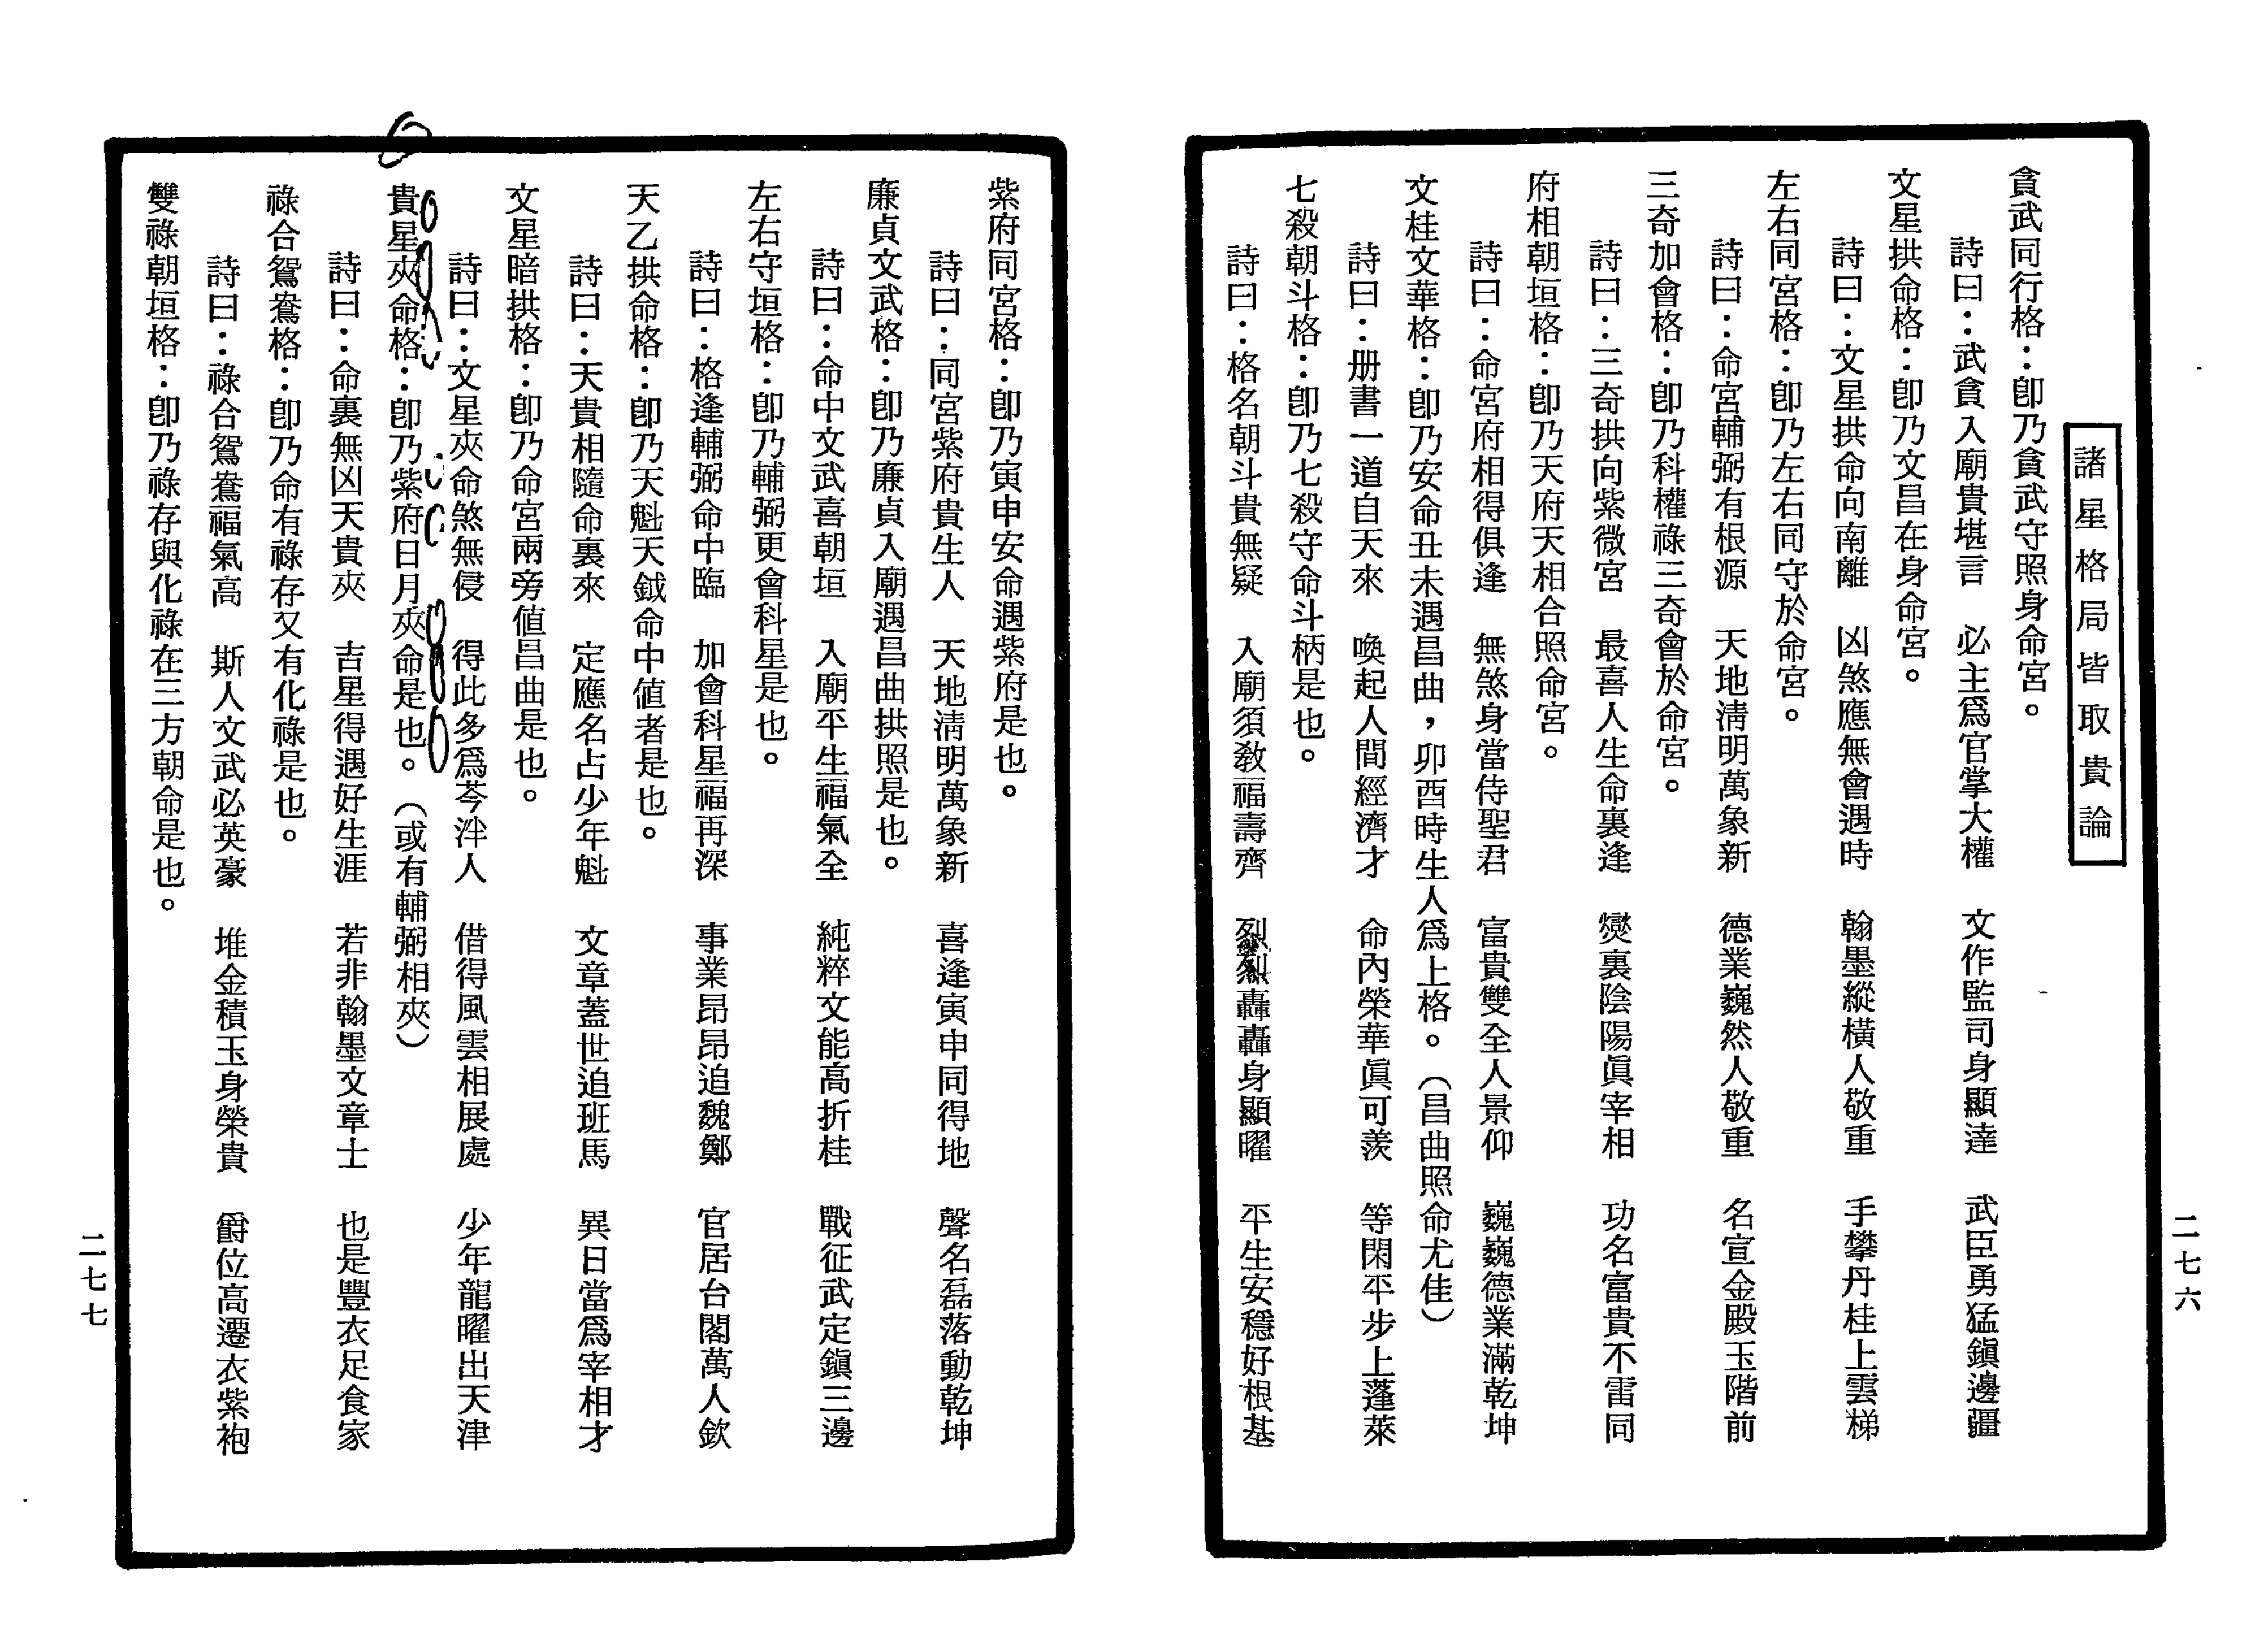 諸星格局皆取貴論
貪武同行格：卽乃貪武守照身命宮。
詩曰：武貪入廟貴堪言　必主爲官掌大權　文作監司身顯達　武臣勇猛鎭邊疆
文星拱命格：卽乃文昌在身命宮。
詩曰：文星拱命向南離　凶煞應無會遇時　翰墨縱橫人敬重　手攀丹桂上雲梯
左右同宮格：卽乃左右同守於命宮。
詩曰：命宮輔弼有根源　天地淸明萬象新　德業巍然人敬重　名宣金殿玉階前
三奇加會格：卽乃科權祿三奇會於命宮。
詩曰：三奇拱向紫微宮　最喜人生命裏逢　爕裏陰陽眞宰相　功名富貴不雷同
府相朝垣格：卽乃天府天相合照命宮。
詩曰：命宮府相得俱逢　無煞身當侍聖君　富貴雙全人景仰　巍巍德業滿乾坤
文桂文華格：卽乃安命丑未遇昌曲，卯酉時生人爲上格。（昌曲照命尤佳）
詩曰：册書一道自天來　喚起人間經濟才　命內榮華眞可羨　等閑平步上蓬萊
七殺朝斗格：卽乃七殺守命斗柄是也。
詩曰：格名朝斗貴無疑　入廟須敎福壽齊　烈轟轟身顯曜　平生安穩好根基
二七六
紫府同宮格：卽乃寅申安命遇紫府是也。
詩曰：同宮紫府貴生人　天地淸明萬象新　喜逢寅申同得地　聲名磊落動乾坤
廉貞文武格：卽乃廉貞入廟遇昌曲拱照是也。
詩曰：命中文武喜朝垣　入廟平生福氣全　純粹文能高折桂　戰征武定鎭三邊
左右守垣格：卽乃輔弼更會科星是也。
詩曰：格逢輔弼命中臨　加會科星福再深　事業昂昂追魏鄭　官居台閣萬人欽
天乙拱命格：卽乃天魁天鉞命中値者是也。
詩曰：天貴相隨命裏來　定應名占少年魁　文章蓋世追班馬　異日當爲宰相才
文星暗拱格：卽乃命宮兩旁値昌曲是也。
詩曰：文星夾命煞無侵　得此多爲芩泮人　借得風雲相展處　少年龍曜出天津
貴星夾命格：卽乃紫府日月夾命是也。（或有輔弼相夾）
詩曰：命裏無凶天貴夾　吉星得遇好生涯　若非翰墨文章士　也是豐衣足食家
祿合鴛鴦格：卽乃命有祿存又有化祿是也。
詩曰：祿合鴛鴦福氣高　斯人文武必英豪　堆金積玉身榮貴　爵位高遷衣紫袍
雙祿朝垣格：卽乃祿存與化祿在三方朝命是也。
二七七